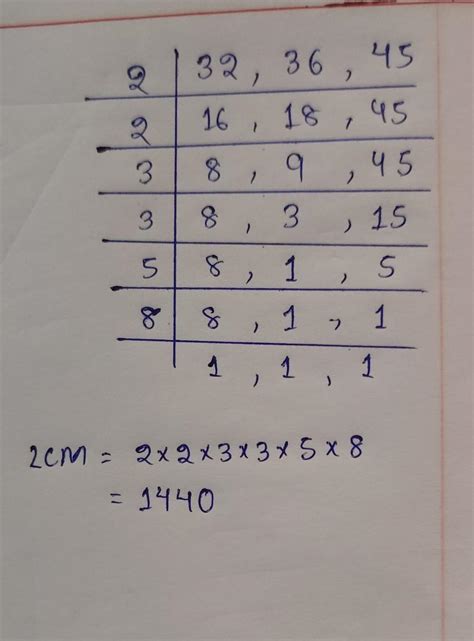 2 | 32, 36, 45
2 | 16, 18, 45
3 | 8, 9, 45
3 | 8, 3, 15
5 | 8, 1, 5
8 | 8, 1, 1
1, 1, 1
LCM = 2×2×3×3×5×8
= 1440